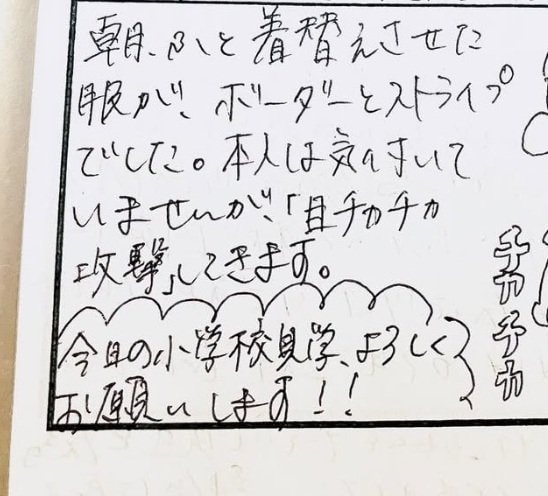 朝、ふと着替えさせた
服が、ボーダーとストライプ
でした。本人は気付いて
いませんが、「目チカチカ
攻撃」してきます。
今日の小学校見学、よろしく
お願いします!!
チカチカ